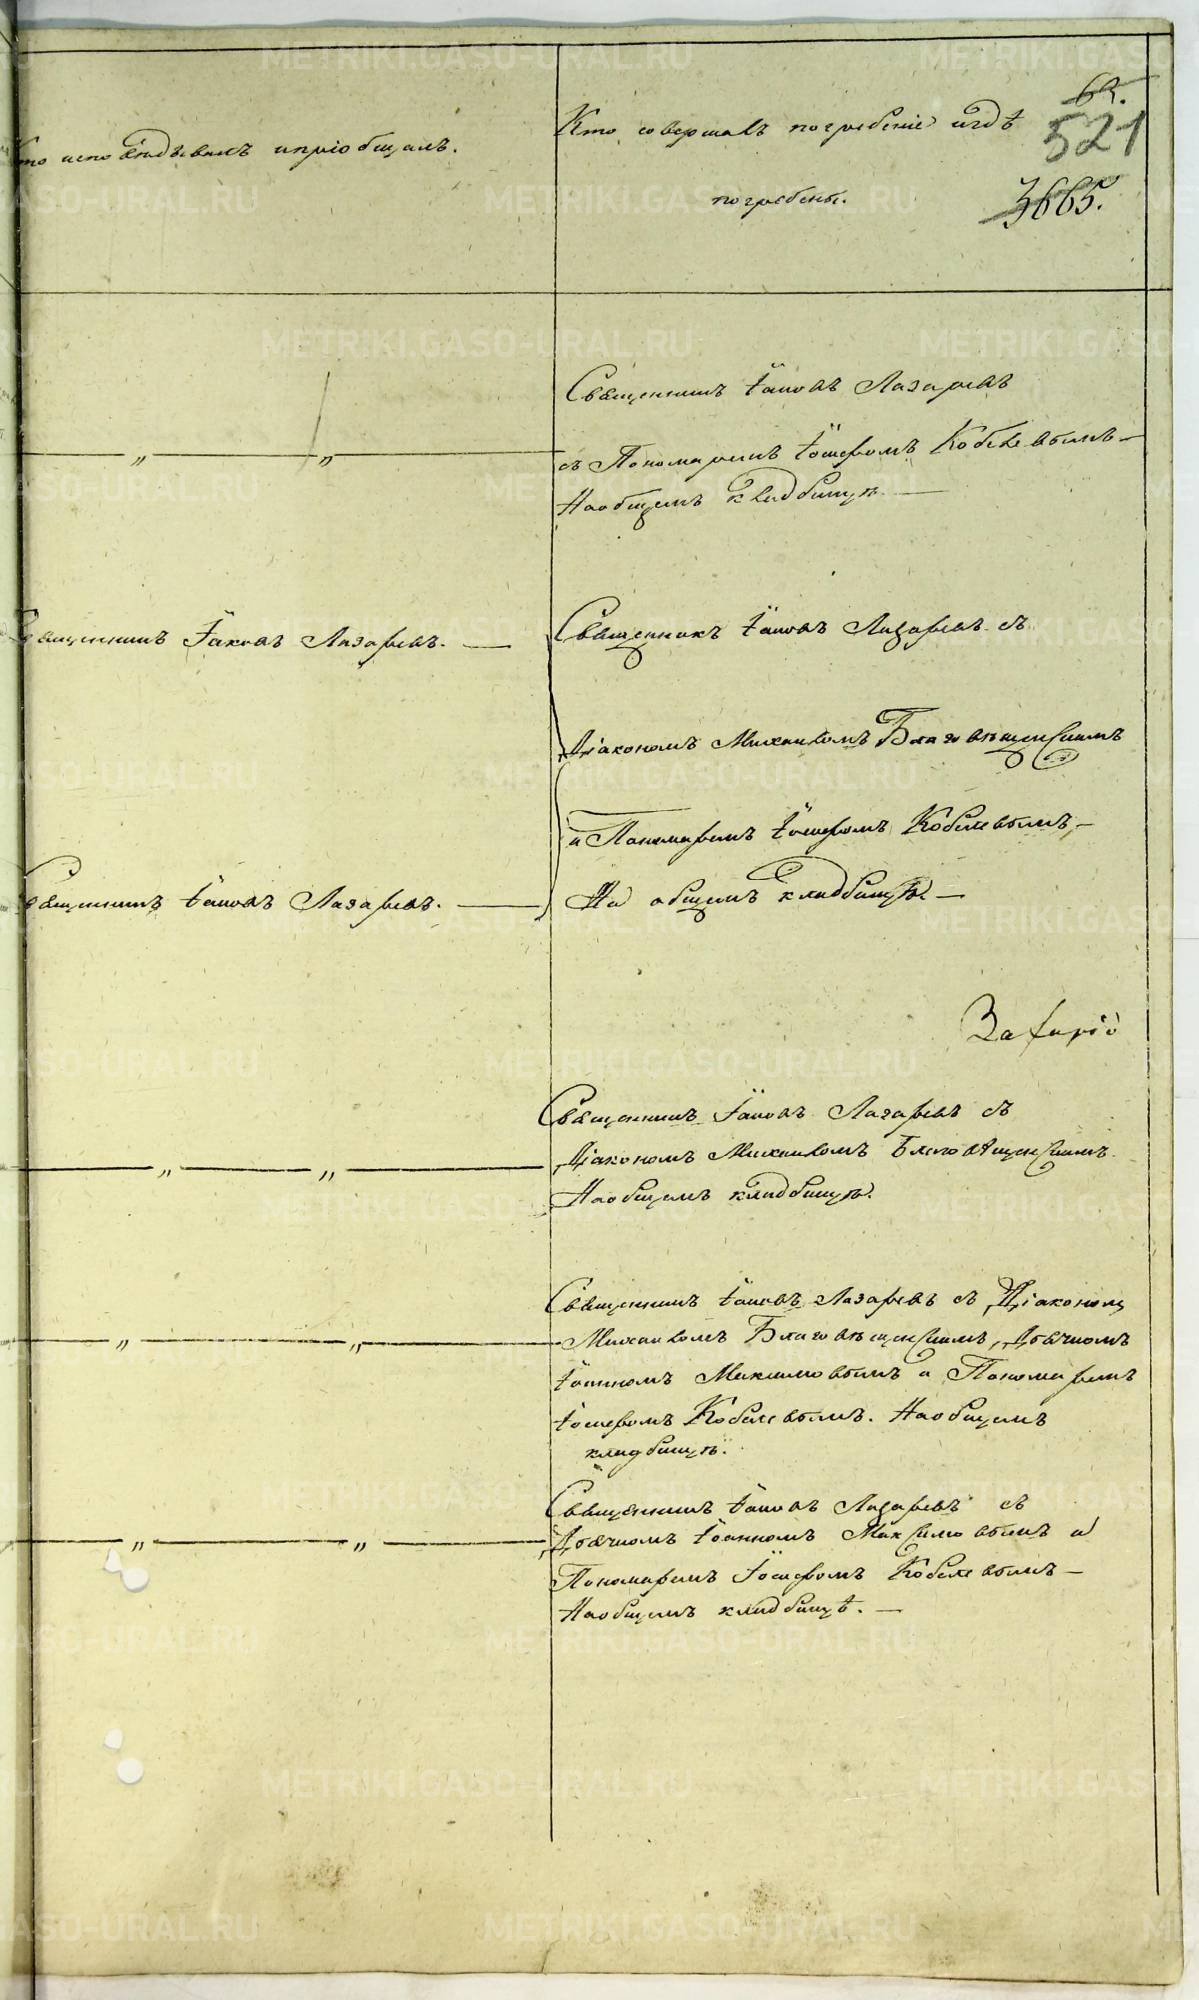 Кто исповѣдывалъ и пріобщалъ.
Кто совершалъ погребеніе и гдѣ
погребены.
521
3665.
Священникъ Іаковъ Лазаревъ
съ Пономаремъ Іосифомъ Кобелевымъ —
На общемъ кладбищѣ. —
„ „
Священникъ Іаковъ Лазаревъ. —
Священникъ Іаковъ Лазаревъ съ
Діакономъ Михаиломъ Благовѣщенскимъ
и Пономаремъ Іосифомъ Кобелевымъ, —
Священникъ Іаковъ Лазаревъ. —
На общемъ кладбищѣ —
Священникъ Іаковъ Лазаревъ съ
„ „
Діакономъ Михаиломъ Благовѣщенскимъ.
На общемъ кладбищѣ.
Священникъ Іаковъ Лазаревъ съ Діакономъ
„ „
Михаиломъ Благовѣщенскимъ, Дьячкомъ
Іоанномъ Максимовымъ и Пономаремъ
Іосифомъ Кобелевымъ. На общемъ
кладбищѣ.
Священникъ Іаковъ Лазаревъ съ
„ „
Дьячкомъ Іоанномъ Максимовымъ и
Пономаремъ Іосифомъ Кобелевымъ —
На общемъ кладбищѣ. —
METRIKI.GASO-URAL.RU